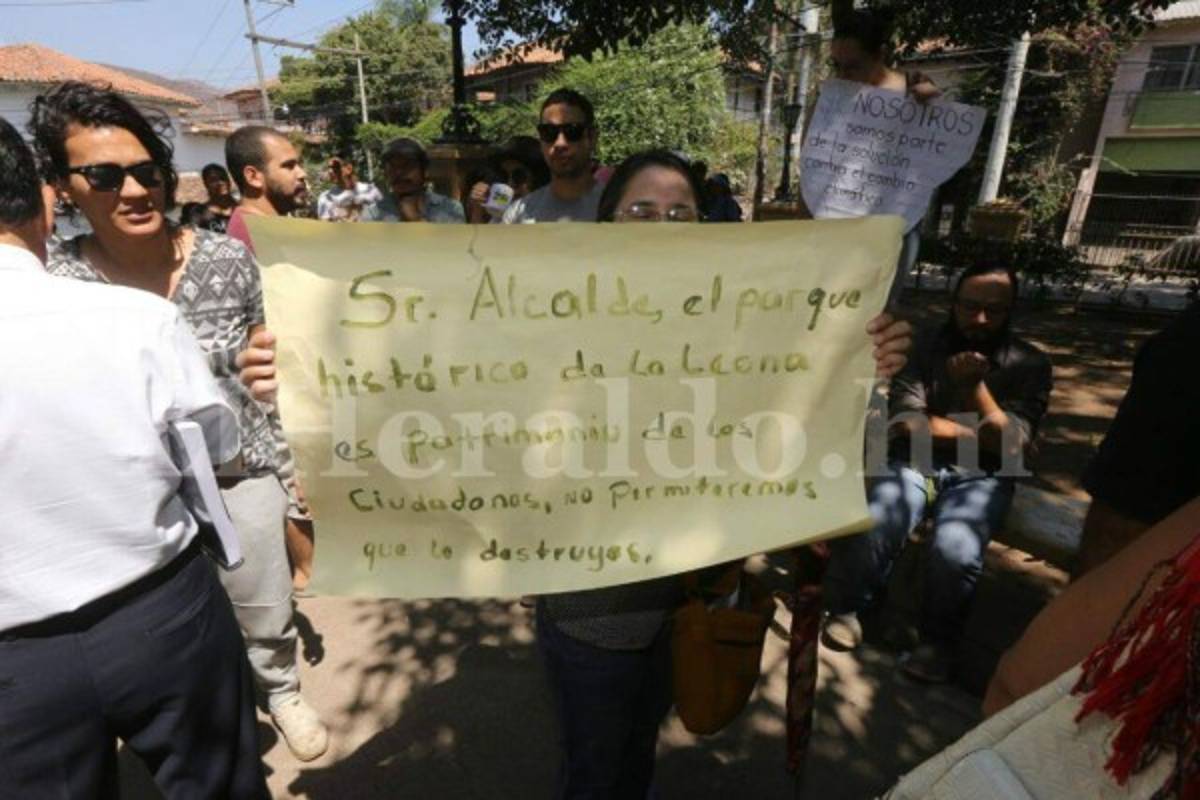 Sr. Alcalde, el parque
histórico de la Leona
es patrimonio de los
Ciudadanos, no Permitiremos
que lo destruyas.
NOSOTROS
somos parte
de la solución
contra el cambio
climatico
Heraldo.hn